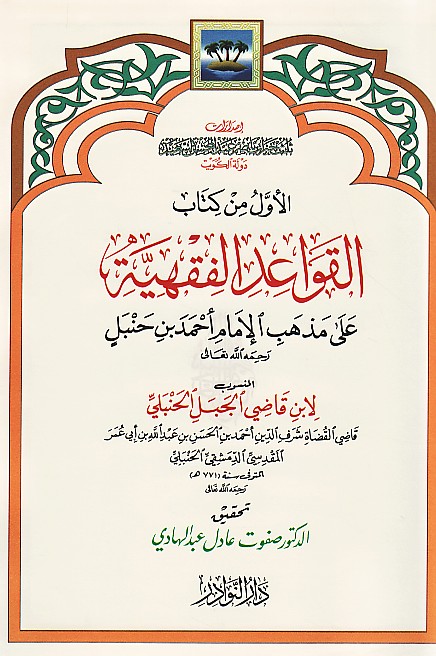 إصدارات
دولة الكويت
الأَوَّلُ مِنْ كِتَابِ
القَوَاعِدِ الفِقْهِيَّةِ
عَلَى مَذْهَبِ الإِمَامِ أَحْمَدَ بْنِ حَنْبَلٍ
رحمه الله تعالى
المنسوب
لِابْنِ قَاضِي الجَبَلِ الحَنْبَلِيِّ
قَاضِي القُضَاةِ شَرَفِ الدِّينِ أَحْمَدَ بْنِ الحَسَنِ بْنِ عَبْدِ اللهِ بْنِ أَبِي عُمَرَ
المَقْدِسِيِّ الدِّمَشْقِيِّ الحَنْبَلِيِّ
المتوفى سنة (٧٧١ هـ)
رحمه الله تعالى
تحقيق
الدكتور صفوت عادل عبد الهادي
دَارُ النَّوَادِرِ